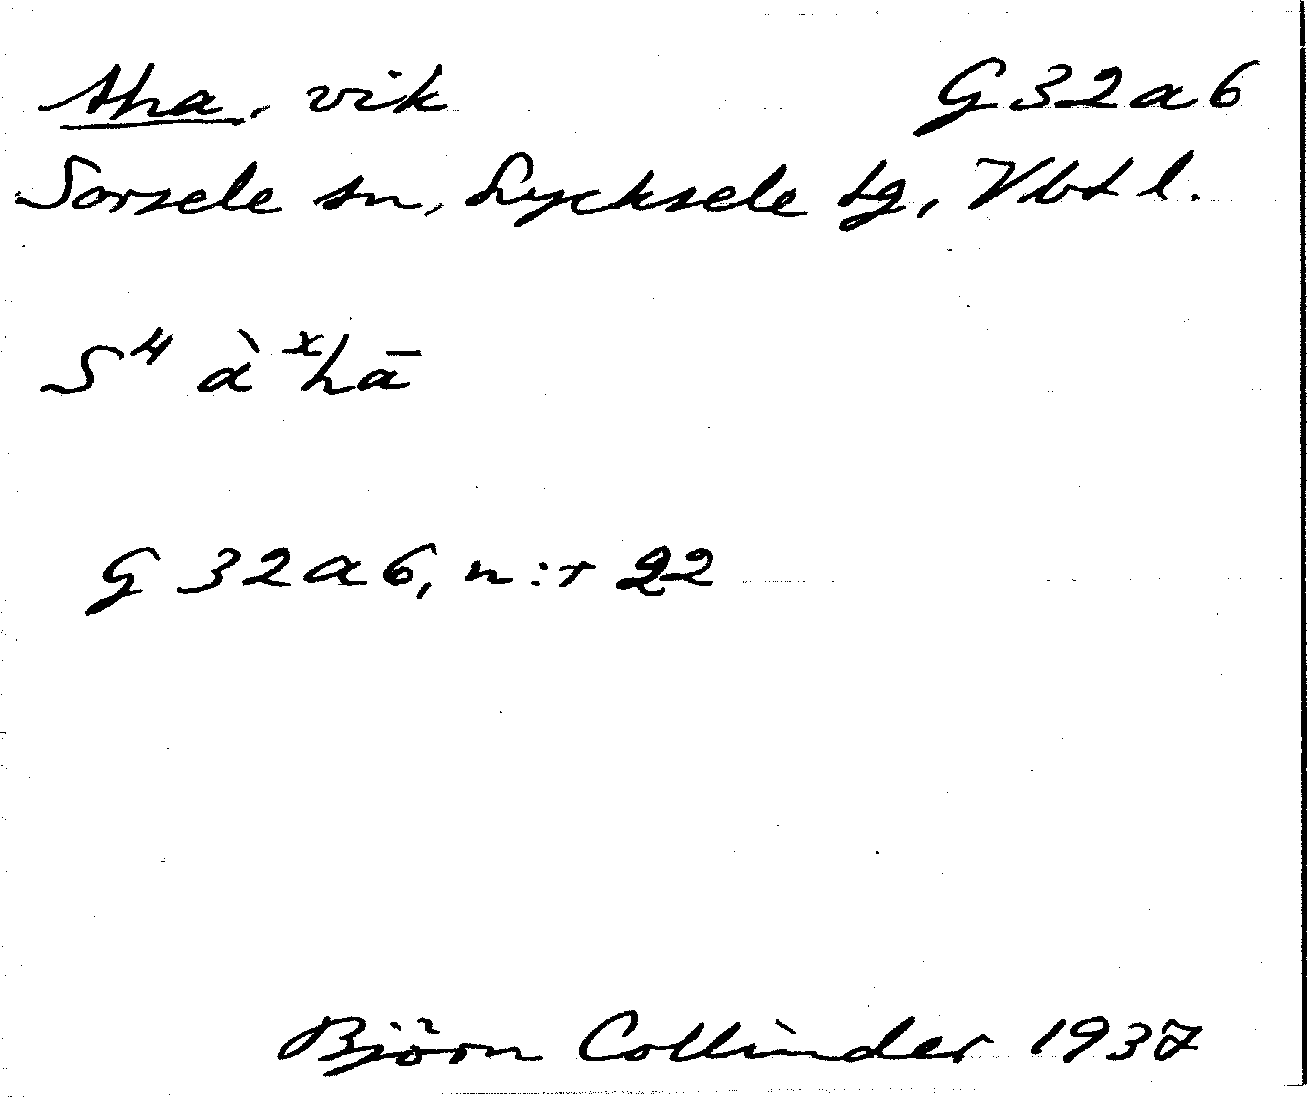 Aha, vik G 32 a 6
Sorsele sn, Lycksele tg, Vbtl.
S⁴ àˣhā
G 32 a 6, n:r 22
Björn Collinder 1937